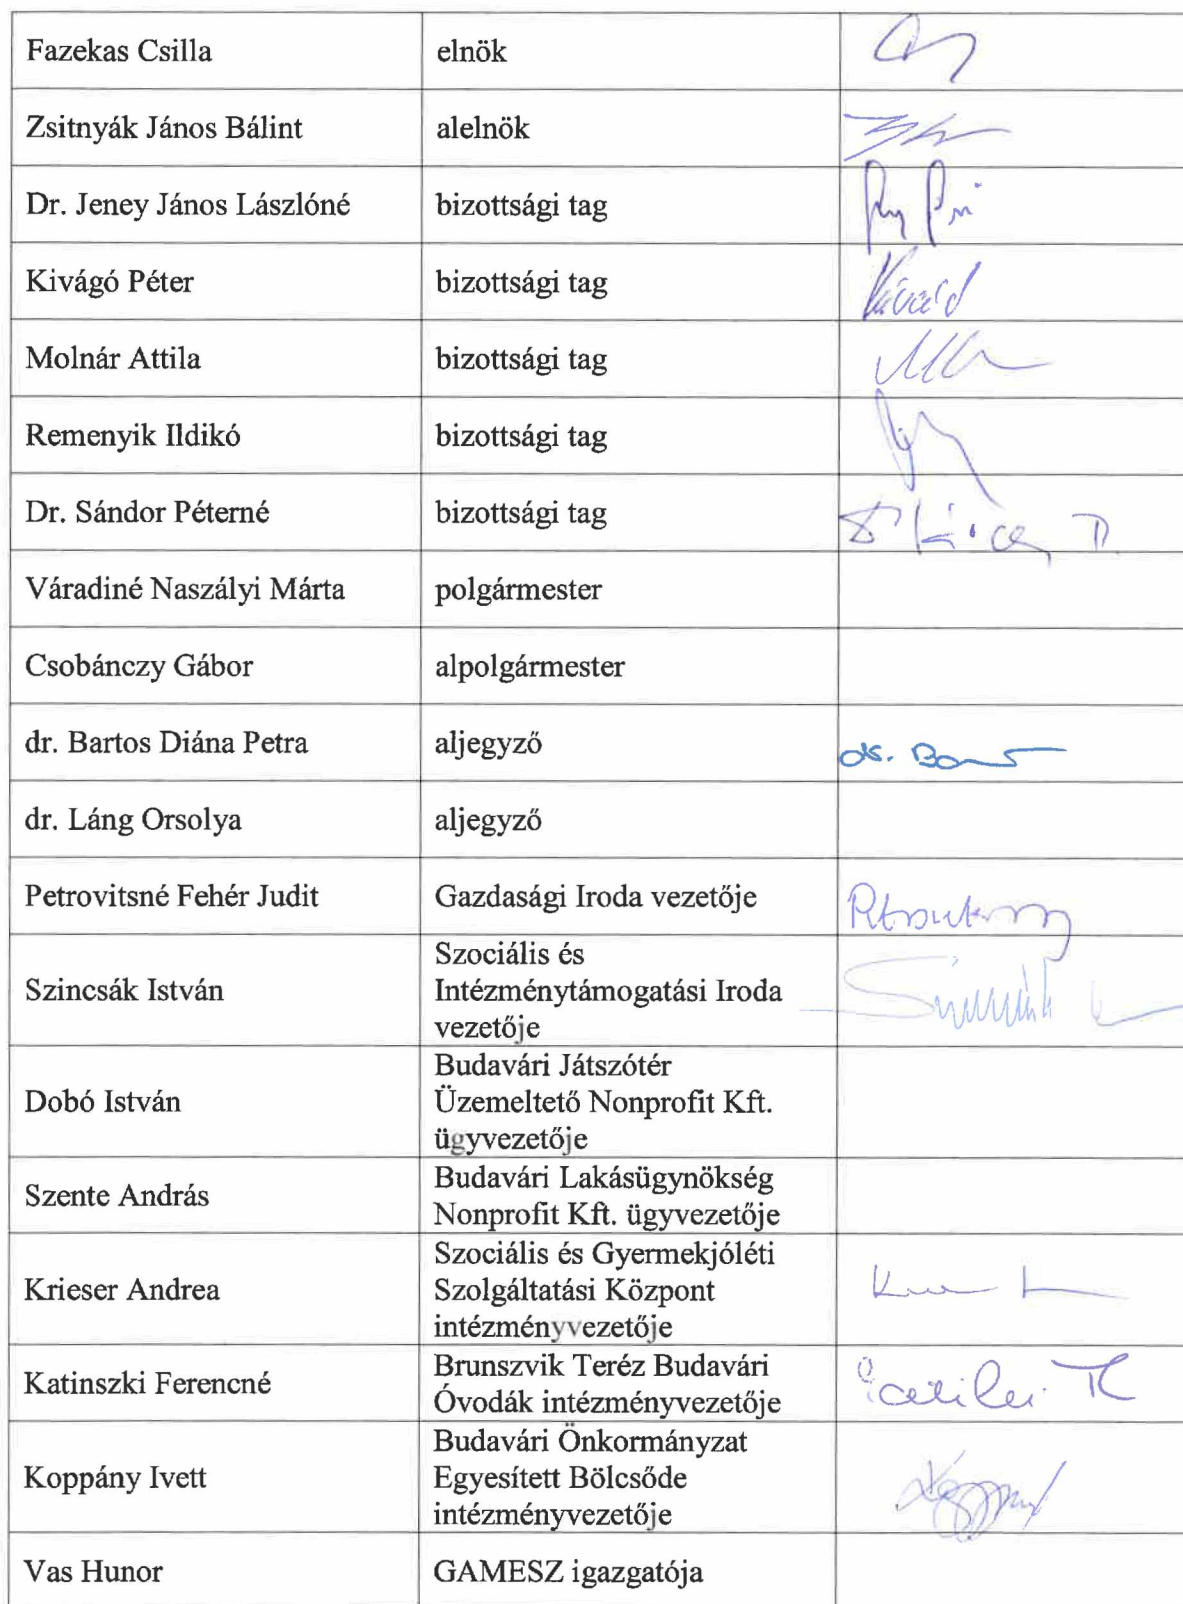 Fazekas Csilla elnök
Zsitnyák János Bálint alelnök
Dr. Jeney János Lászlóné bizottsági tag
Kivágó Péter bizottsági tag
Molnár Attila bizottsági tag
Remenyik Ildikó bizottsági tag
Dr. Sándor Péterné bizottsági tag
Váradiné Naszályi Márta polgármester
Csobánczy Gábor alpolgármester
dr. Bartos Diána Petra aljegyző dr.
dr. Láng Orsolya aljegyző
Petrovitsné Fehér Judit Gazdasági Iroda vezetője
Szincsák István
Szociális és
Intézménytámogatási Iroda
vezetője
Dobó István
Budavári Játszótér
Üzemeltető Nonprofit Kft.
ügyvezetője
Szente András
Budavári Lakásügynökség
Nonprofit Kft. ügyvezetője
Krieser Andrea
Szociális és Gyermekjóléti
Szolgáltatási Központ
intézményvezetője
Katinszki Ferencné
Brunszvik Teréz Budavári
Óvodák intézményvezetője
Koppány Ivett
Budavári Önkormányzat
Egyesített Bölcsőde
intézményvezetője
Vas Hunor GAMESZ igazgatója